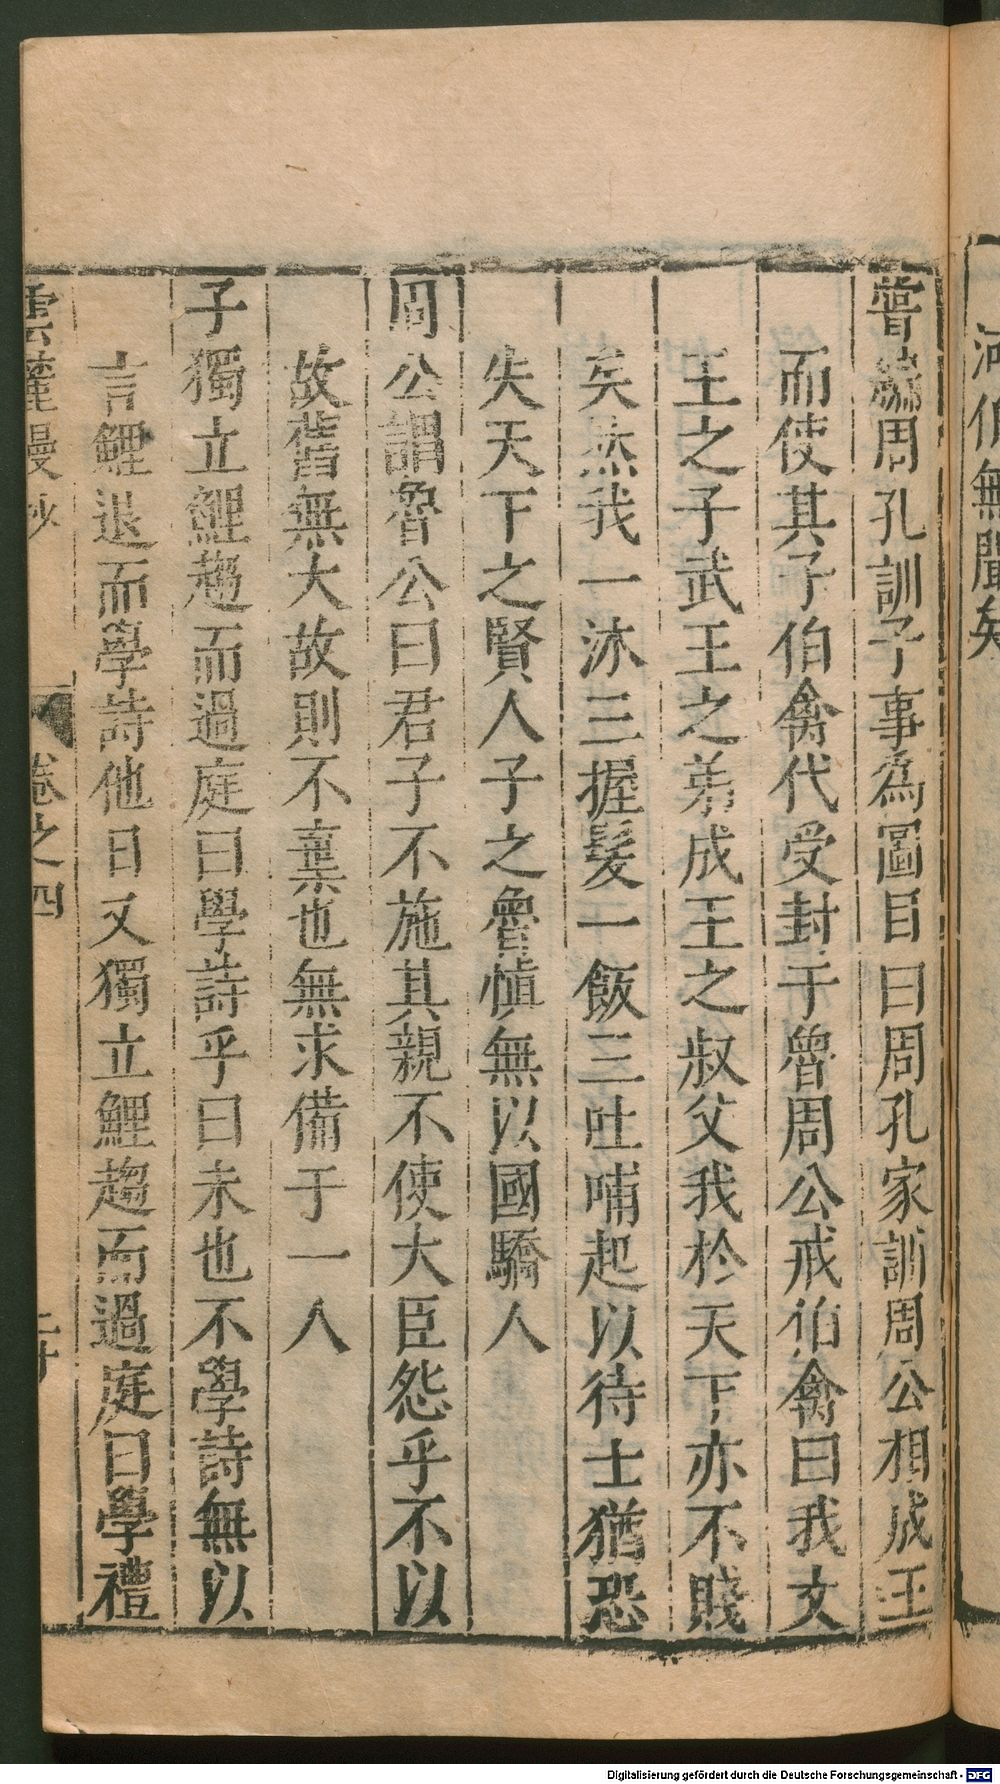 河伯無聞矣
嘗編周孔訓子事為圖目曰周孔家訓周公相成王
而使其子伯禽代受封于魯周公戒伯禽曰我文
王之子武王之弟成王之叔父我於天下亦不賤
矣然我一沐三握髮一飯三吐哺起以待士猶恐
失天下之賢人子之魯慎無以國驕人
周公謂魯公曰君子不施其親不使大臣怨乎不以
故舊無大故則不棄也無求備于一人
子獨立鯉趨而過庭曰學詩乎曰未也不學詩無以
言鯉退而學詩他日又獨立鯉趨而過庭曰學禮
雲麓漫抄 卷之四
Digitalisierung gefördert durch die Deutsche Forschungsgemeinschaft - DFG